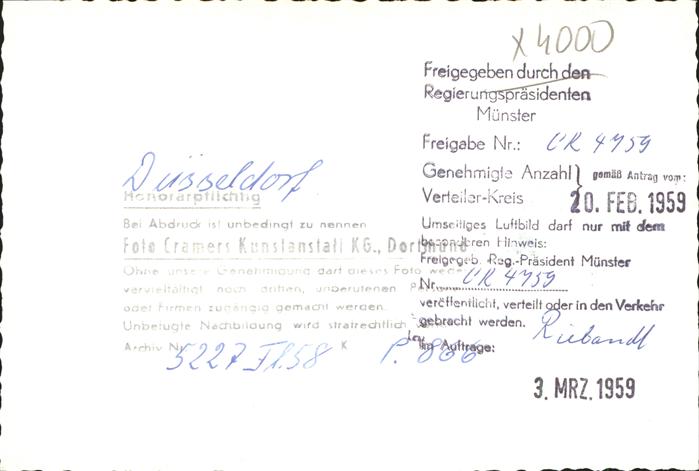 x 4000
Freigegeben durch den
Regierungspräsidenten
Münster
Freigabe Nr.: CR 4759
Genehmigte Anzahl } gemäß Antrag vom:
Verteiler-Kreis 20. FEB. 1959
Umseitiges Luftbild darf nur mit dem
besonderen Hinweis:
Freigegeb. Reg.-Präsident Münster
Nr. CR 4759
veröffentlicht, verteilt oder in den Verkehr
gebracht werden.
Im Auftrage:
3. MRZ. 1959
Düsseldorf
Honorarpflichtig
Bei Abdruck ist unbedingt zu nennen
Foto Cramers Kunstanstalt KG., Dortmund
Ohne unsere Genehmigung darf dieses Foto weder
vervielfältigt noch dritten, unberufenen
oder Firmen zugängig gemacht werden.
Unbefugte Nachbildung wird strafrechtlich
Archiv Nr. 5227 Fl.58 K P. 866